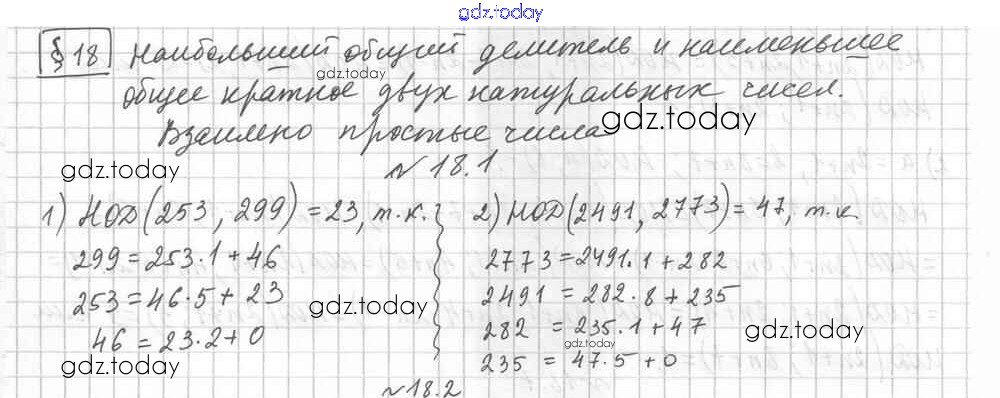 gdz.today
§ 18 Наибольший общий делитель и наименьшее
gdz.today
общее кратное двух натуральных чисел.
Взаимно простые числа
gdz.today
gdz.today
№ 18.1
1) НОД(253, 299) = 23, т.к.
299 = 253·1 + 46
253 = 46·5 + 23
46 = 23·2 + 0
2) НОД(2491, 2773) = 47, т.к.
2773 = 2491·1 + 282
2491 = 282·8 + 235
282 = 235·1 + 47
235 = 47·5 + 0
gdz.today
gdz.today
gdz.today
gdz.today
№ 18.2